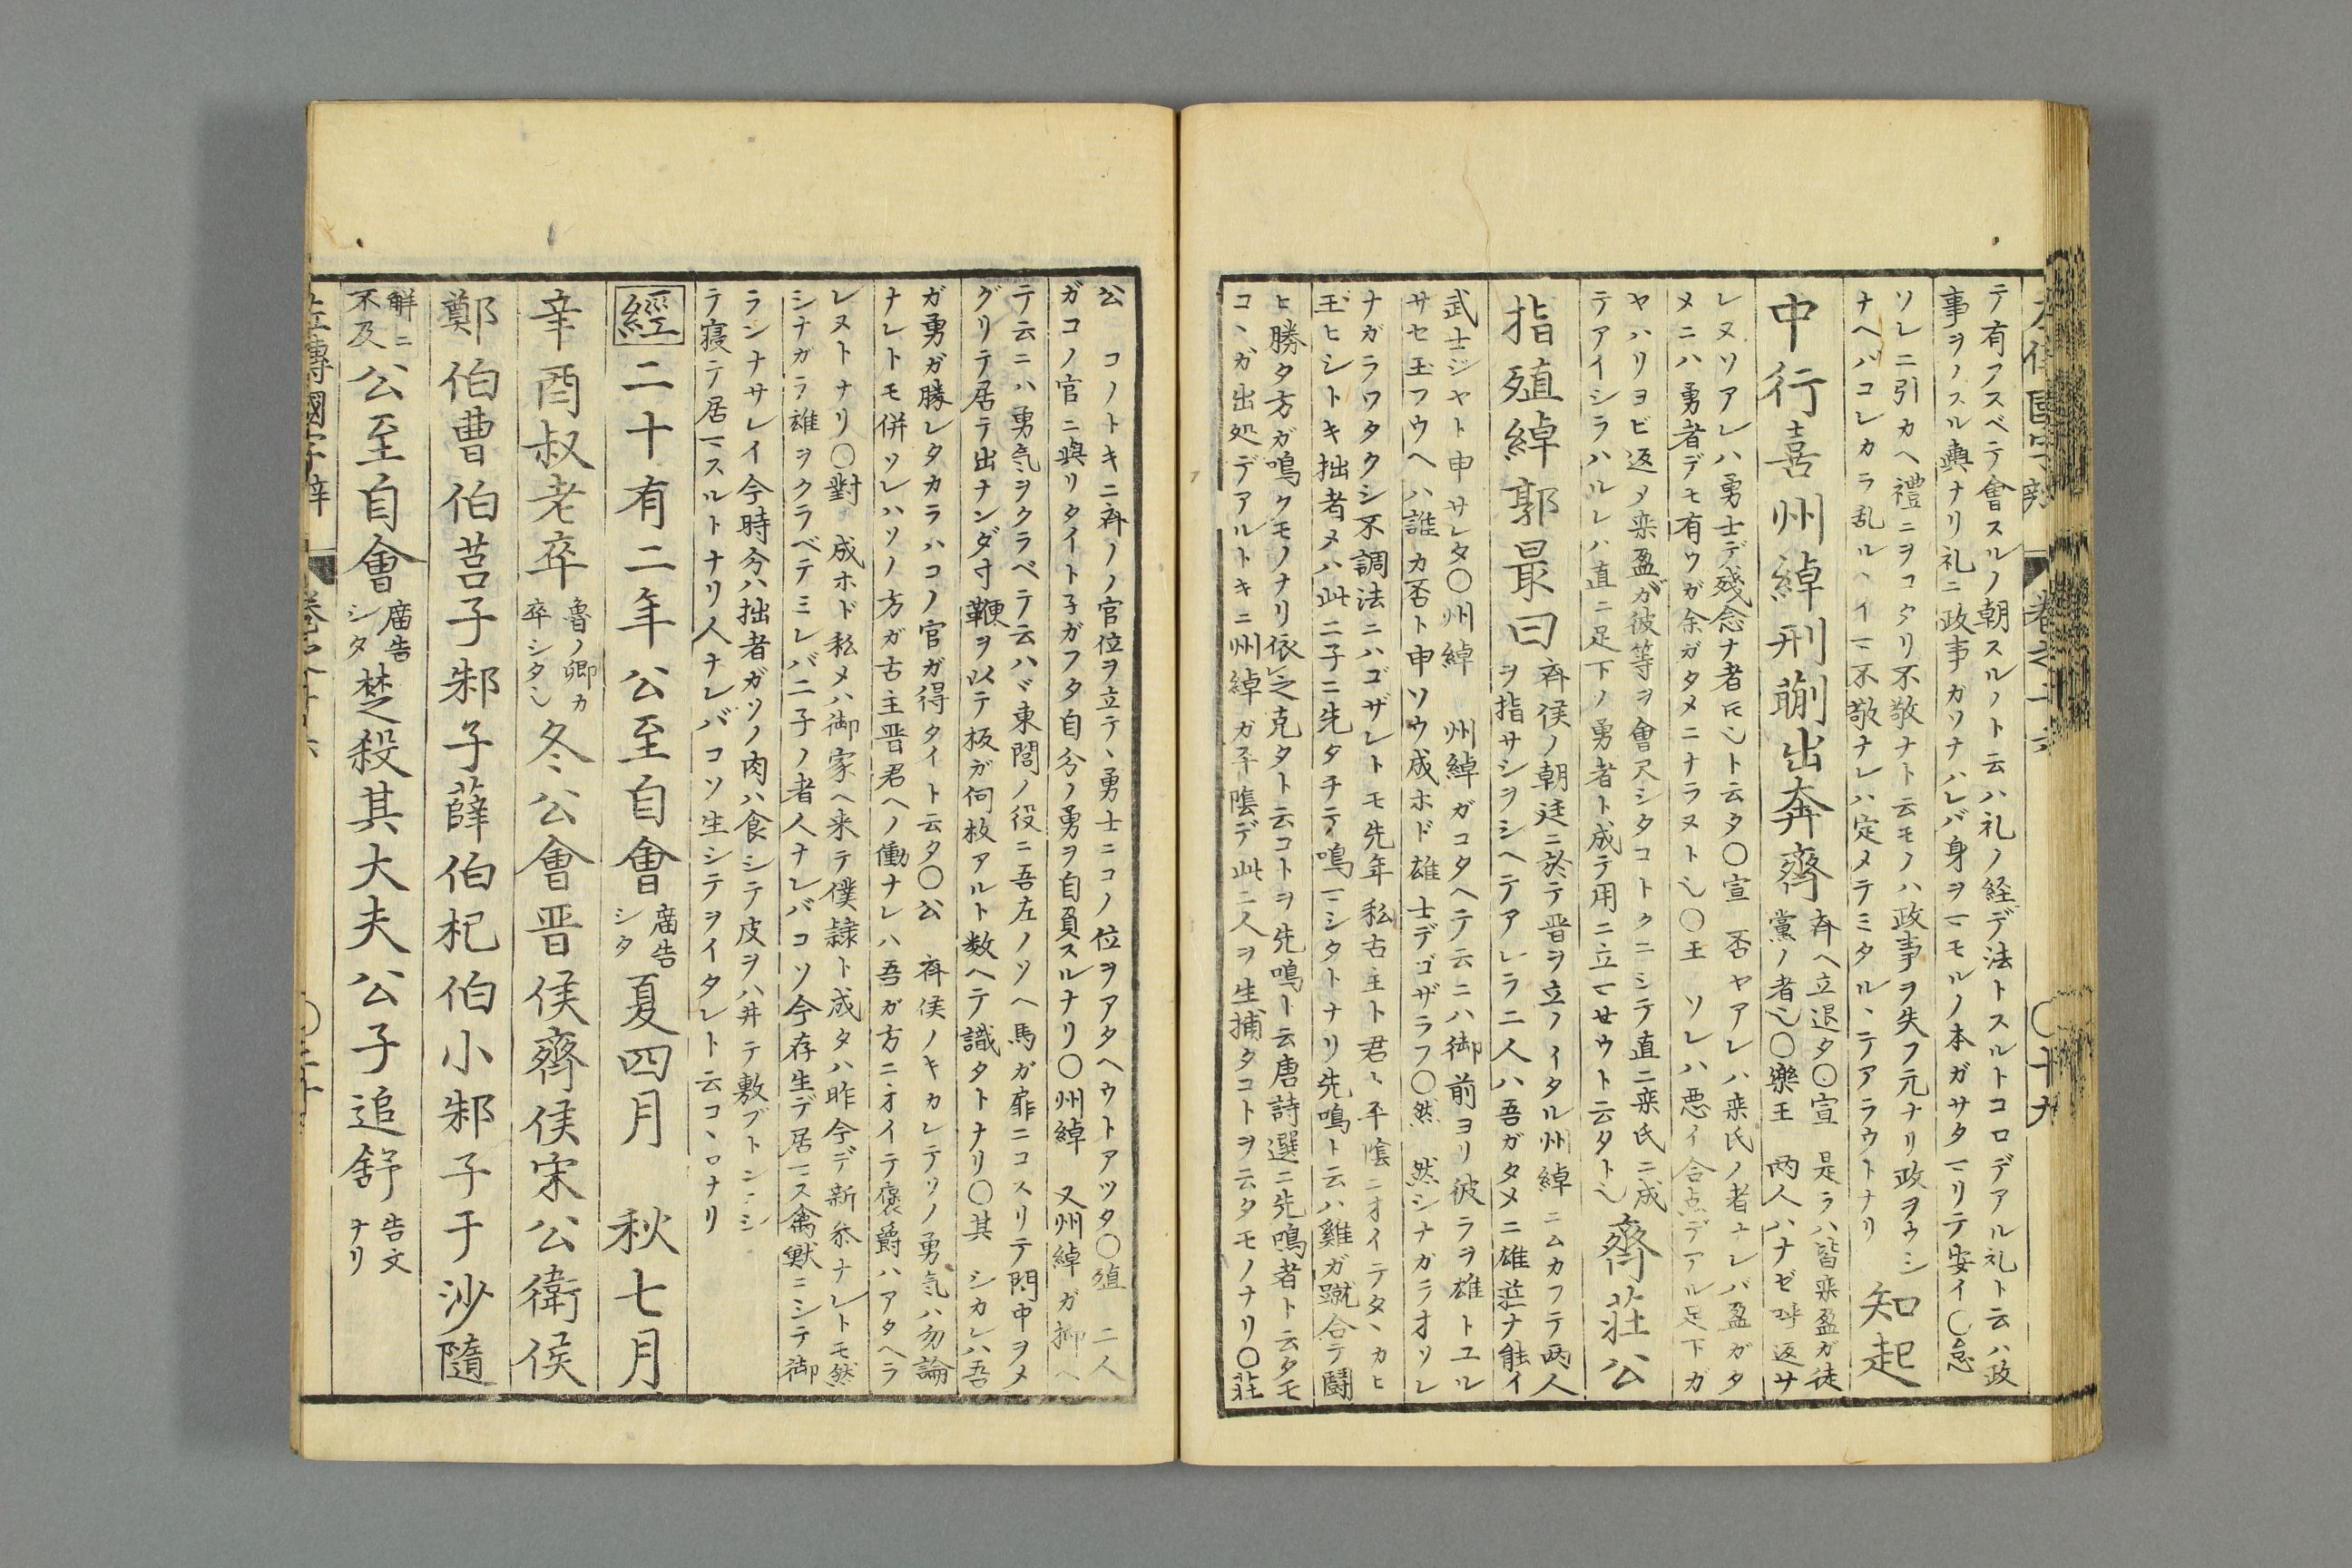 テ有アスベテ會スルノ朝スルノト云ハ礼ノ経デ法トスルトコロデアル礼ト云ハ政
事ヲノスル輿ナリ礼ニ政事ガソナハレバ身ヲマモルノ本ガサタマリテ安イ〇怠
ソレニ引カヘ禮ニヲコタリ不敬ナト云モノハ政事ヲ失フ元ナリ政ヲウシ
ナヘバコレカラ乱ルヽイマ不敬ナレハ定メテミタルヽテアラウトナリ
知起
中行喜州綽刑蒯出奔齊
斉ヘ立退タ〇宣 是ラハ皆欒盈ガ徒
黨ノ者也〇樂王 両人ハナゼ呼返サ
レヌソアレハ勇士デ殘念ナ者Fト云タ〇宣 否ヤアレハ欒氏ノ者ナレバ盈ガタ
メニハ勇者デモ有ウガ余ガタメニナラヌト也〇王 ソレハ悪イ合点デアル足下ガ
ヤハリヨビ返メ欒盈ガ彼等ヲ會尺シタコトクニシテ直ニ欒氏ニ成
テアイシラハルレハ直ニ足下ノ勇者ト成テ用ニ立マセウト云タト也
齊莊公
指殖綽郭最曰
斉侯ノ朝廷ニ於テ晋ヲ立ノイタル州綽ニムカフテ両人
ヲ指サシヲシヘテアレラ二人ハ吾ガタメニ雄莊ナ能イ
武士ジャト申サレタ〇州綽 州綽ガコタヘテ云ニハ御前ヨリ彼ラヲ雄トユル
サセ玉フウヘハ誰カ否ト申ソウ成ホド雄士デゴザラフ〇然 然シナカラオソレ
ナガラワタクシ不調法ニハゴザレトモ先年私古主ト君ミ平隂ニオイテタヽカヒ
玉ヒシトキ拙者メハ此二子ニ先タチテ鳴マシタトナリ先鳴ト云ハ雞ガ蹴合テ鬪
ヒ勝タ方ガ鳴クモノナリ依之克タト云コトヲ先鳴ト云唐詩選ニ先鳴者ト云タモ
コヽガ出処デアルトキニ州綽ガ平隂デ此二人ヲ生捕タコトヲ云タモノナリ〇莊
公 コノトキニ斉ノノ官位ヲ立テヽ勇士ニコノ位ヲアタヘウトアツタ〇殖 二人
ガコノ官ニ與リタイト子ガフタ自分ノ勇ヲ自負スルナリ〇州綽 又州綽ガ抑ヘ
テ云ニハ勇気ヲクラベテ云ハヾ東閭ノ役ニ吾左ノソヘ馬ガ扉ニコスリテ門中ヲメ
グリテ居テ出ナンダ寸鞭ヲ以テ板ガ何枚アルト数ヘテ識タトナリ〇其 シカレハ吾
ガ勇ガ勝レタカラハコノ官ガ得タイト云タ〇公 斉侯ノキカレテソノ勇気ハ勿論
ナレトモ併ソレハソノ方ガ古主晋君ヘノ働ナレハ吾ガ方ニオイテ褒爵ハアタヘラ
レヌトナリ〇對 成ホド私メハ御家ヘ来テ僕隷ト成タハ昨今デ新参ナレトモ然
シナガラ雄ヲクラベテミレバ二子ノ者人ナレバコソ今存生デ居マス禽獸ニシテ御
ランナサレイ今時分ハ拙者ガソノ肉ハ食シテ皮ヲハ并テ敷ブトンニシ
テ寝テ居マスルトナリ人ナレバコソ生シテヲイタレト云コヽロナリ
經二十有二年公至自會
廟告
シタ
夏四月 秋七月
辛酉叔老卒
魯ノ卿カ
卒シタ也
冬公會晋侯齊侯宋公衛侯
鄭伯曹伯莒子邾子薛伯杞伯小邾子于沙隨
解ニ
不及
公至自會
廟告
シタ
楚殺其大夫公子追舒
告文
ナリ
左傳國字辯 卷之十六 〇二十